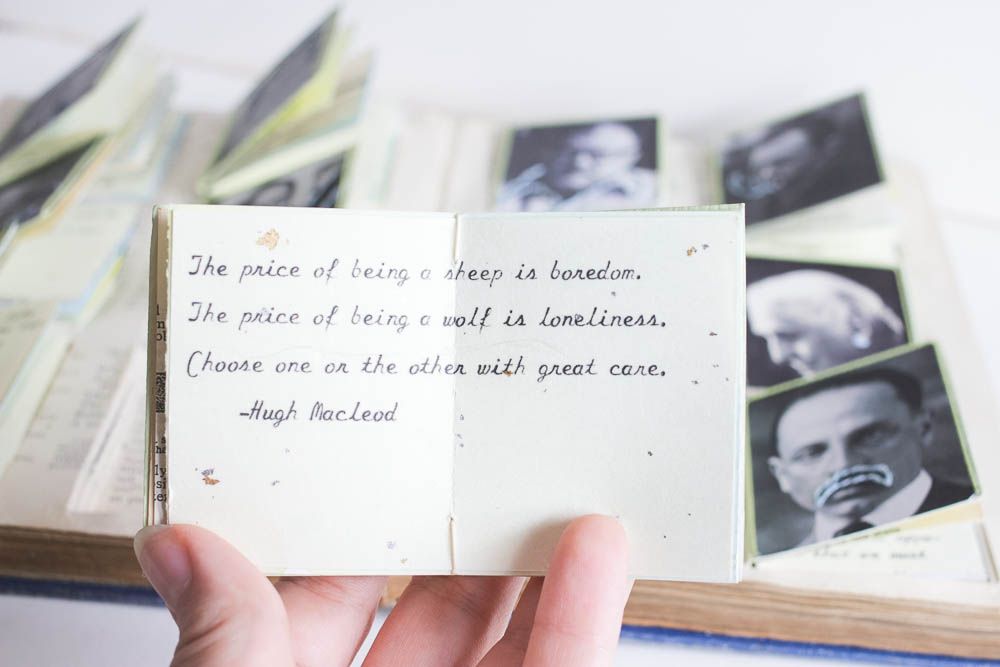 The price of being a sheep is boredom.
The price of being a wolf is loneliness.
Choose one or the other with great care.
-Hugh MacLeod